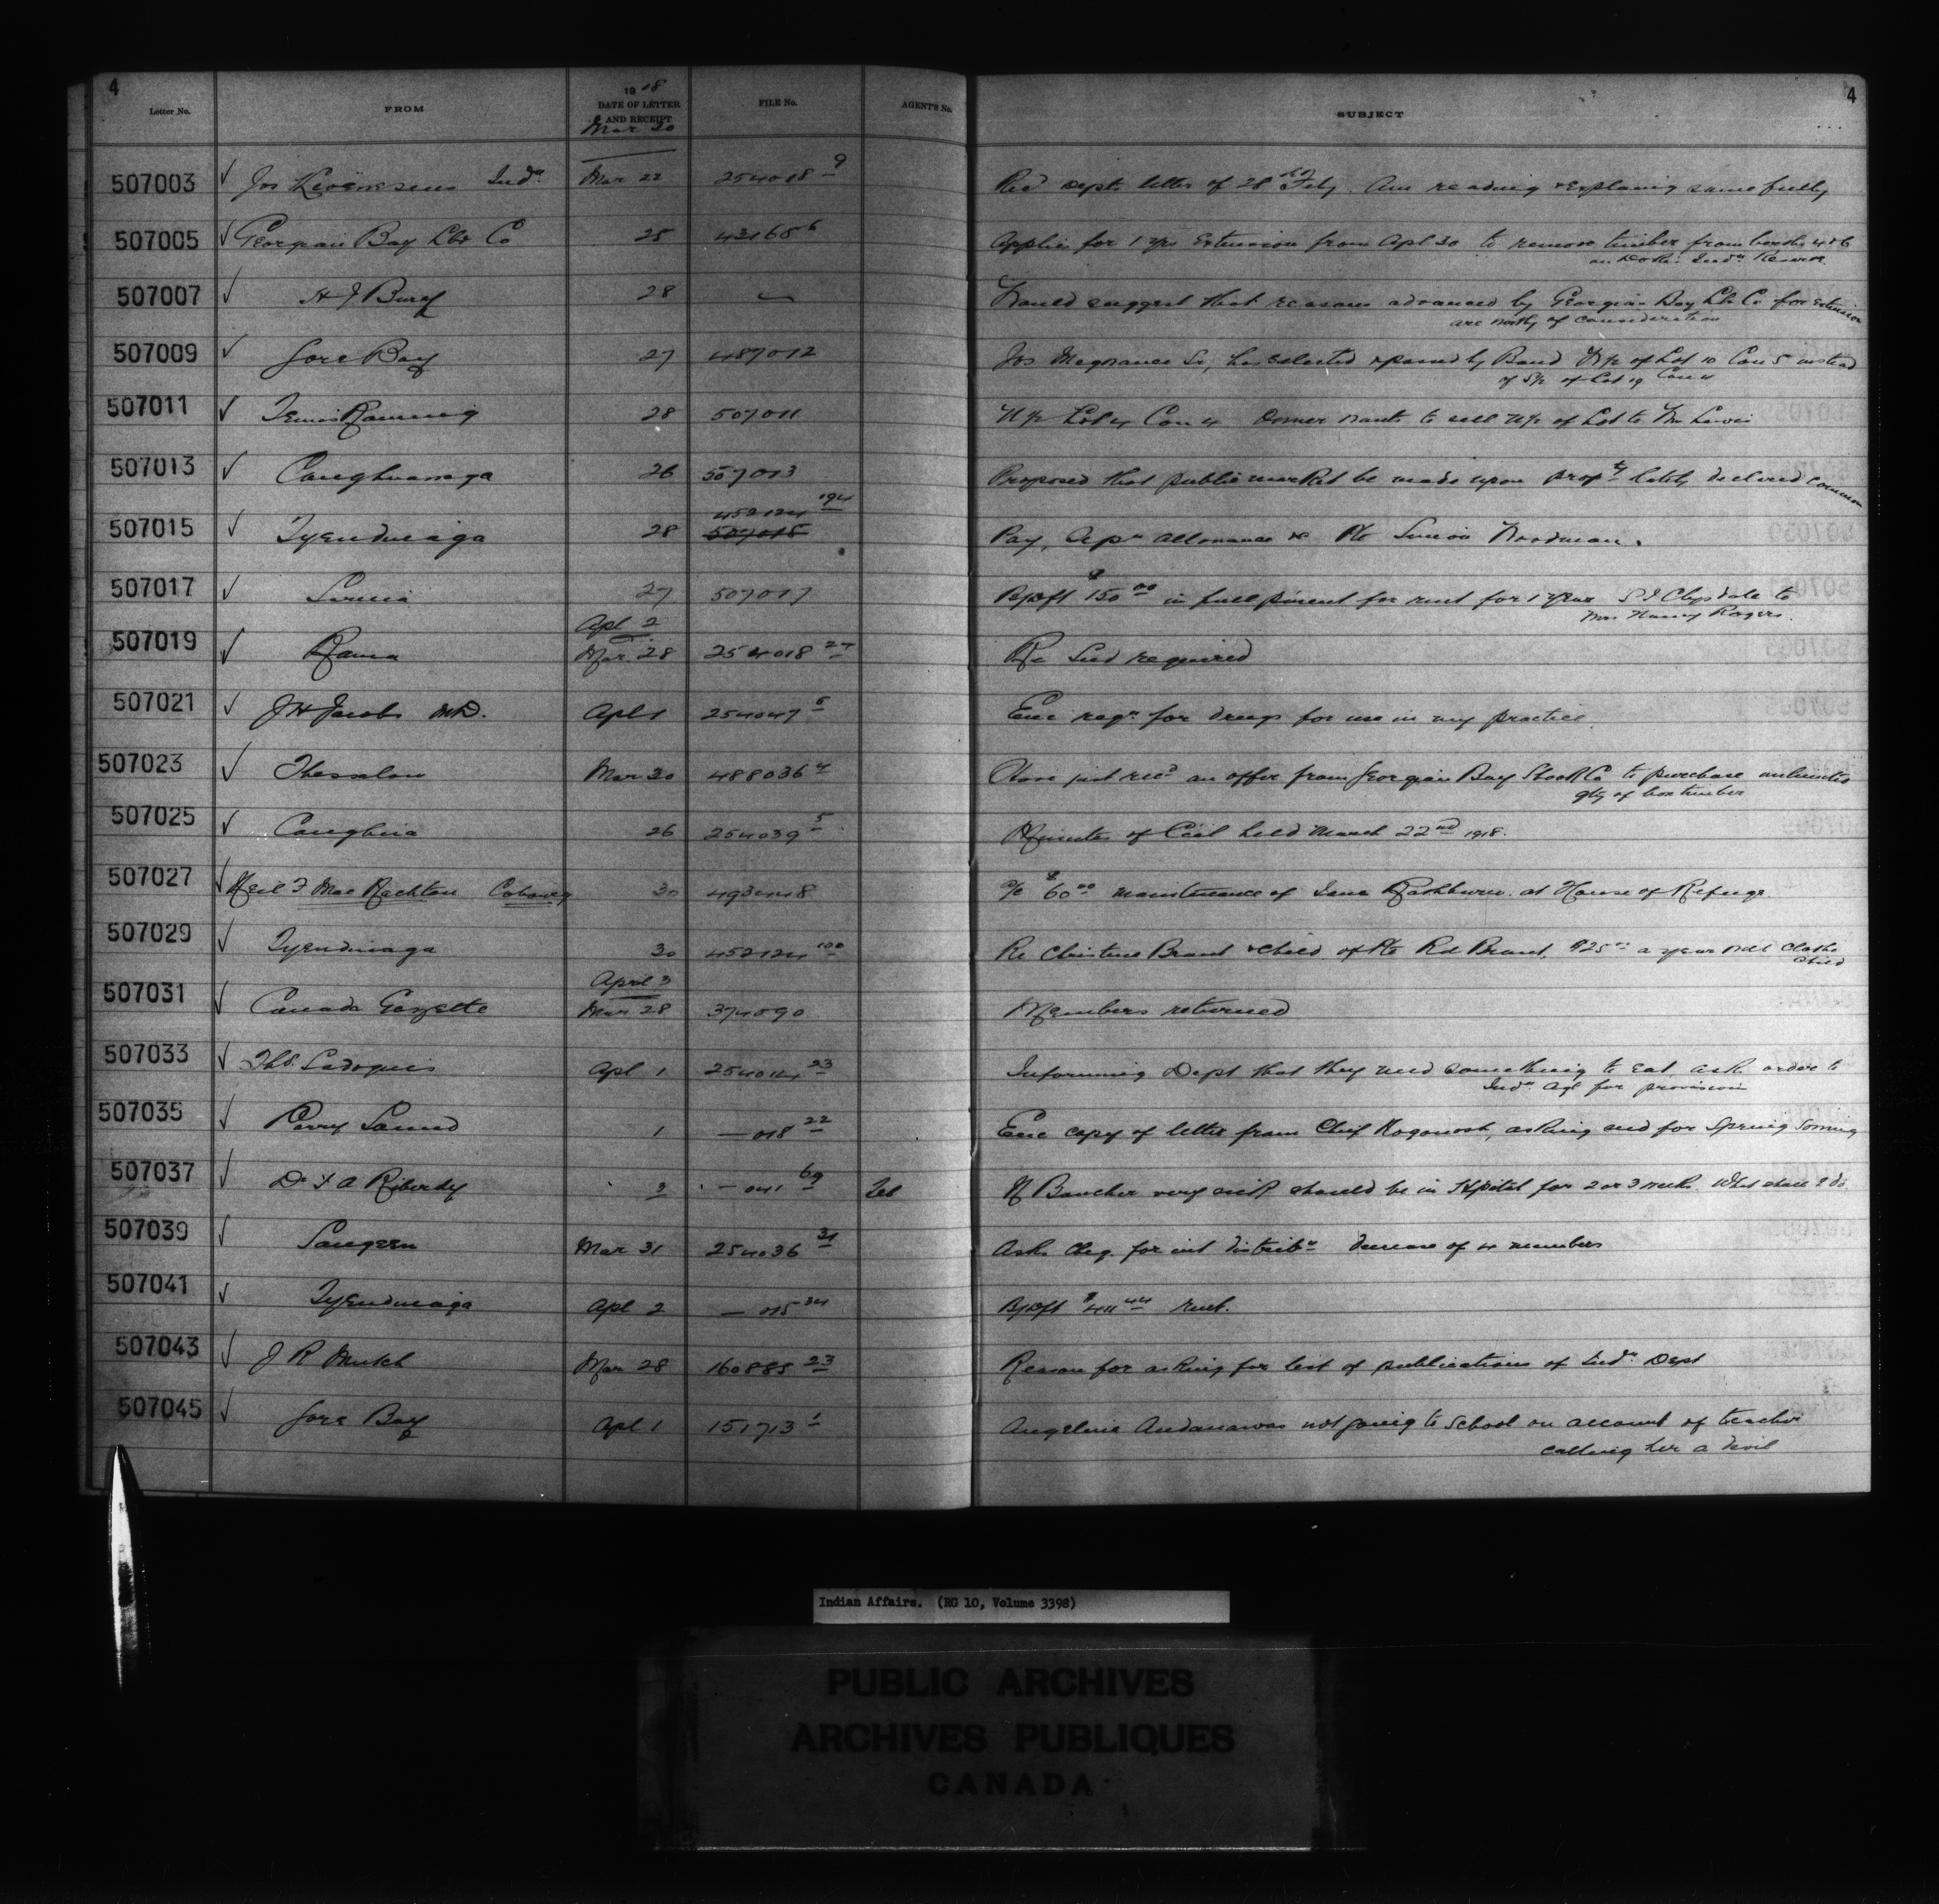 4
4
Letter No. FROM 1918 DATE OF LETTER AND RECEIPT FILE No. AGENT'S No. SUBJECT
Mar 30
507003 ✓ Jos Indn Mar 22 254018 9 Recd Depts letter of 28th Feby. Am reading & explaining same fully
507005 ✓ Georgian Bay Lbr Co 25 42165 6 Applic for 1 yrs Extension from Apl 30 to remove timber from berths 4 & 6
on Indn Reserve
507007 ✓ H J Bury 28 — Would suggest that reasons advanced by Georgian Bay Lbr Co for extension
are worthy of consideration
507009 ✓ Gore Bay 27 487012 Jos Sr, has selected & passed by Band N½ of Lot 10 Con 5 instead
of S½ of Lot 19 Con 4
507011 ✓ 28 507011 N½ Lot 4 Con 4 Owner wants to sell N½ of Lot to Wm Lewis
507013 ✓ Caughnawaga 26 507013 Proposed that public market be made upon propty lately declared common
507015 ✓ Tyendinaga 28 452124 194 507015 Pay, Sepn allowance &c Pte Simon Woodman.
507017 ✓ Sarnia 27 507017 B/Dft $150.00 in full pment for rent for 1 year S J Clysdale to
Mrs Nancy Rogers.
Apl 2
507019 ✓ Rama Mar. 28 254018 27 Re Seed required
507021 ✓ J H Jacobs M.D. Apl 1 254047 6 Enc reqn for drugs for use in my practice
507023 ✓ Thessalon Mar 30 488036 4 Have just recd an offer from Georgian Bay Shook Co to purchase unlimited
qty of box timber
507025 ✓ Caughna 26 254039 5 Minutes of Ccil held March 22nd 1918.
507027 ✓ Neil F Mac Nachtan Cobourg 30 493448 a/c $60.00 maintenance of Jane Rashburn at House of Refuge.
507029 ✓ Tyendinaga 30 452124 100 Re Christine Brant & child of Pte Rd Brant, $25.00 a year will clothe
child
April 3
507031 ✓ Canada Gazette Mar 28 374090 Members returned
507033 ✓ Ths. Sadoquis Apl 1 254014 23 Informing Dept that they need something to eat ask order to
Indn Agt for provision
507035 ✓ Parry Sound 1 — 018 22 Enc copy of letter from Chief asking seed for Spring Sowing
507037 ✓ Dr F A Riberdy 3 — 041 69 Tel M Boucher very sick should be in Hpital for 2 or 3 weeks. What shall I do
507039 ✓ Saugeen Mar 31 254036 31 Asks cheq. for int distribn decrease of 4 members
507041 ✓ Tyendinaga Apl 2 — 015 34 B/Dft $411.44 rent.
507043 ✓ J R Mutch Mar 28 160885 23 Reason for asking for list of publications of Indn Dept
507045 ✓ Gore Bay Apl 1 151713 1 Angeline Andanawas not going to school on account of teacher
calling her a devil
Indian Affairs. (RG 10, Volume 3398)
PUBLIC ARCHIVES
ARCHIVES PUBLIQUES
CANADA